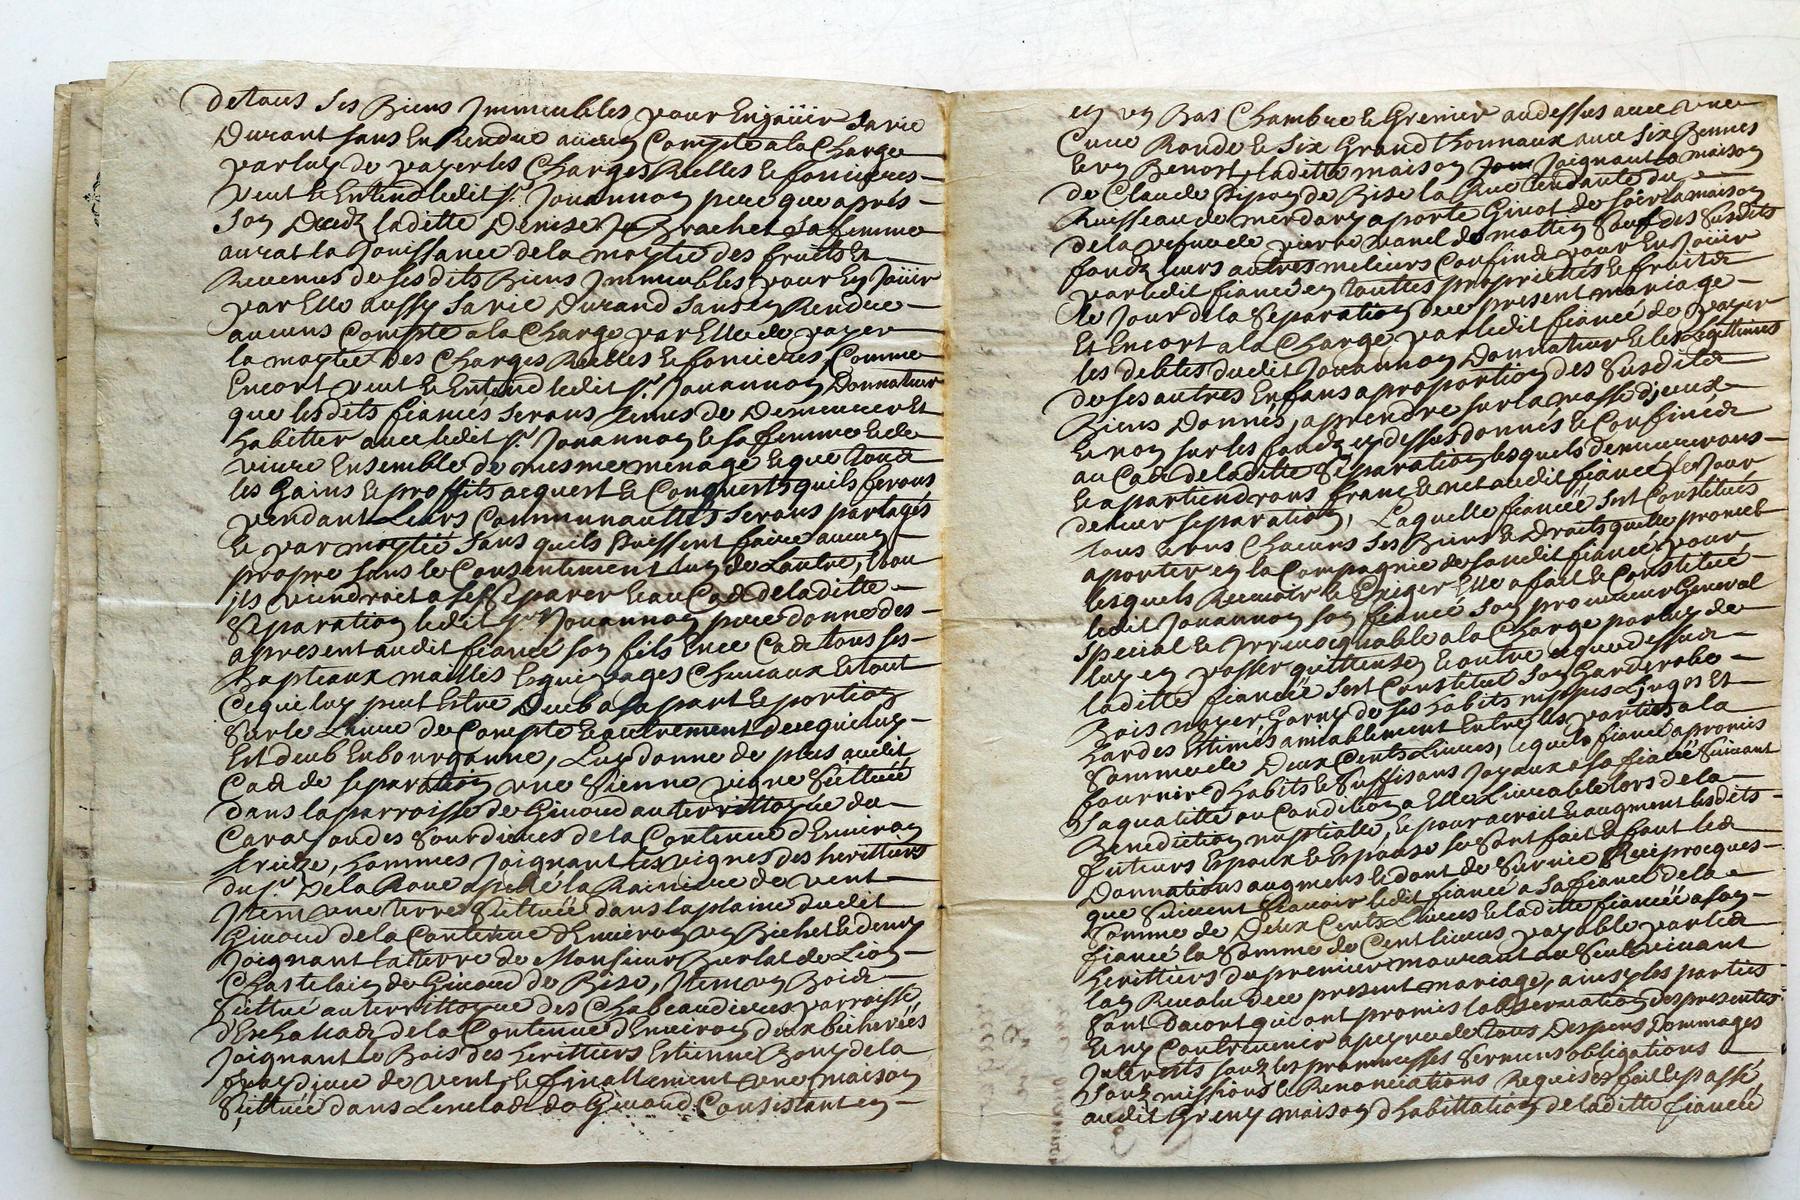 detous ses Biens Immeubles pour En jouir sa vie
Durant sans En Rendre aucun Compte a la Charge
par luy de payer les Charges Reelles & foncieres
veut & Entend ledit Sr. Jouannon pere que aprés
son Decedz laditte Denise Brachet sa femme
aurat la Jouissance de la moytié des fruits Et
Revenus de sesdits Biens Immeubles pour En Jouir
par Elle aussy sa vie Durand sans En Rendre
aucuns Compte a la Charge par Elle de payer
la moytié des Charges Reelles & foncieres, Comme
Encort veut & Entend ledit Sr. Jouannon Donnateur
que lesdits fiancés serons Tenus de Demeurer Et
habitter avec ledit Sr. Jouannon & sa femme & de
vivre Ensemble de mesme menage & que tous
les Gains & proffits acquert & Conquerts quils ferons
pendant Leurs Communauttés serons partagés
& par moytié sans quils Puissent faire aucun
propre sans le Consentement l'un de Lautre,
jls viendroit a se Separer & au Cas de laditte
Separation ledit Sr. Jouannon pere donne des
apresent audit fiancé son fils En ce Cas tous ses
Bapteaux mailles Equipages Chevaux & tout
Ceque luy peut Estre Deub a sa part & portion
Sur le Livre de Compte & autrement de ce qui luy
Est deub En bourgonne, Luy donne de plus audit
Cas de separation une sienne vigne Sittuée
dans la parroisse de Givord au territtoyre du
de la Contenue d'Environ
treize, hommes Joignant les vignes des herittiers
du Sr. De la Roue de vent
Item une terre Sittuée dans la plaine dudit
Givord de la Contenue d'Environ un Bichet & demy
Joignant la terre de Monsieur Burlat de Lion
Chastelain de Givord de Bise, Item un Bois
Sittué au territtoyre des parroisse
d'Echallas de la Contenue d'Environ deux bicherées
Joignant le Bois des herittiers Estienne Bony de la
de vent, & finallement une maison
Sittuée dans Lenclos de Givord Consistant en
en un Bas Chambre & Grenier au dessus avec une
Cuve Ronde & Six Grand thonnaux avec Six Bennes
& un Benost, laditte maison Joignant la maison
de Claude Pipon de Bise la Rue tendante du
Ruisseau de merdary a porte Givot de soir la maison
de la vefve de pierre de mattin Sauf des Susdits
fondz leurs autres melieurs Confins pour En Jouir
par ledit fiancé en touttes proprietés & fruits
le Jour de la Separation dece present mariage
Et Encort a la Charge par ledit fiancé de payer
les debtes dudit Jouannon Donnateur & les Legittimes
de ses autres Enfans a proportion des Susdits
Biens Donnés, a prendre sur la masse d'jceux
& non sur les fondz cy dessus donnés & Confinés
au Cas de laditte Separation lesquels demeurerons
& apartiendrons franc & net audit fiancé le Jour
separation, Laquelle fiancée sest Constituée
tous & uns Chacuns ses Biens & Droits quelle promet
aporter en la Compagnie de sondit fiancé pour
lesquels Recevoir & Exiger Elle a fait & Constitué
ledit Jouannon son fiancé son procureur General
special & Irrevocquable a la Charge par luy de
luy en passer quittense, & outre ce que dessus
laditte fiancée sest Constitué son Garderobe
Bois noyer Garny de ses habits nippes Linges Et
hardes Estimés amiablement Entre les parties a la
Somme de Deux Cents Livres, lequel fiancé a promis
fournir d'habits & Suffisans Joyaux a sa fiancée Suivant
Sa qualitté ou Condition a Elle Livrable lors de la
Benediction nuptialle, & pour acroit & augment lesdits
futeurs Epoux & Espouse se sont fait & font les
Donnations augmens & dont de Survie Reciprocques
que Suivent Scavoir ledit fiancé a sa fiancé de la
Somme de Deux Cents Livres & laditte fiancée a son
fiancé la Somme de Cent livres payable par les
herittiers du premier mourant au Survivant
lan Revolu dece present mariage, ainsy les parties
Sont Dacort qui ont promis lobservation des presentes
& ny Contrevenir a peyne de tous Despens Dommages
Interests souz les promesses Sermens obligations
Souzmissions & Renonciations Requises fait & passé
audit Greny maison d'habittation de laditte fiancée